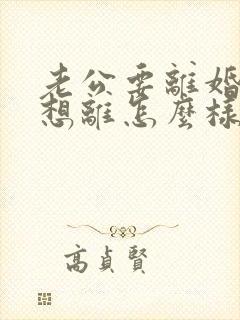 老公要離婚
想離怎麼樣
高貞賢